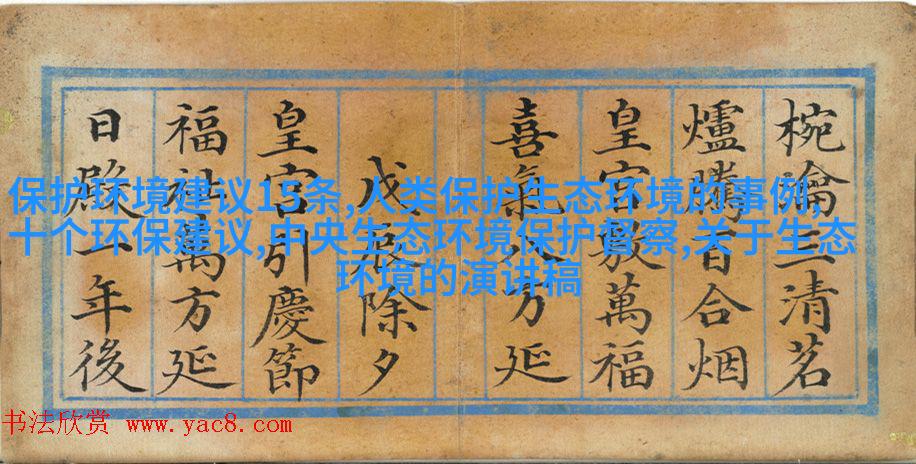 椀瀹三清茗
爐騰百合烟
皇宫敷萬福
喜氣八方延
戊辰除夕
皇宫引慶節
福祉萬方延
日一年後
保护环境建议15条,人类保护生态环境的事例,
十个环保建议,中央生态环境保护督察,关于生态
环境的演讲稿
书法欣赏 www.yac8.com